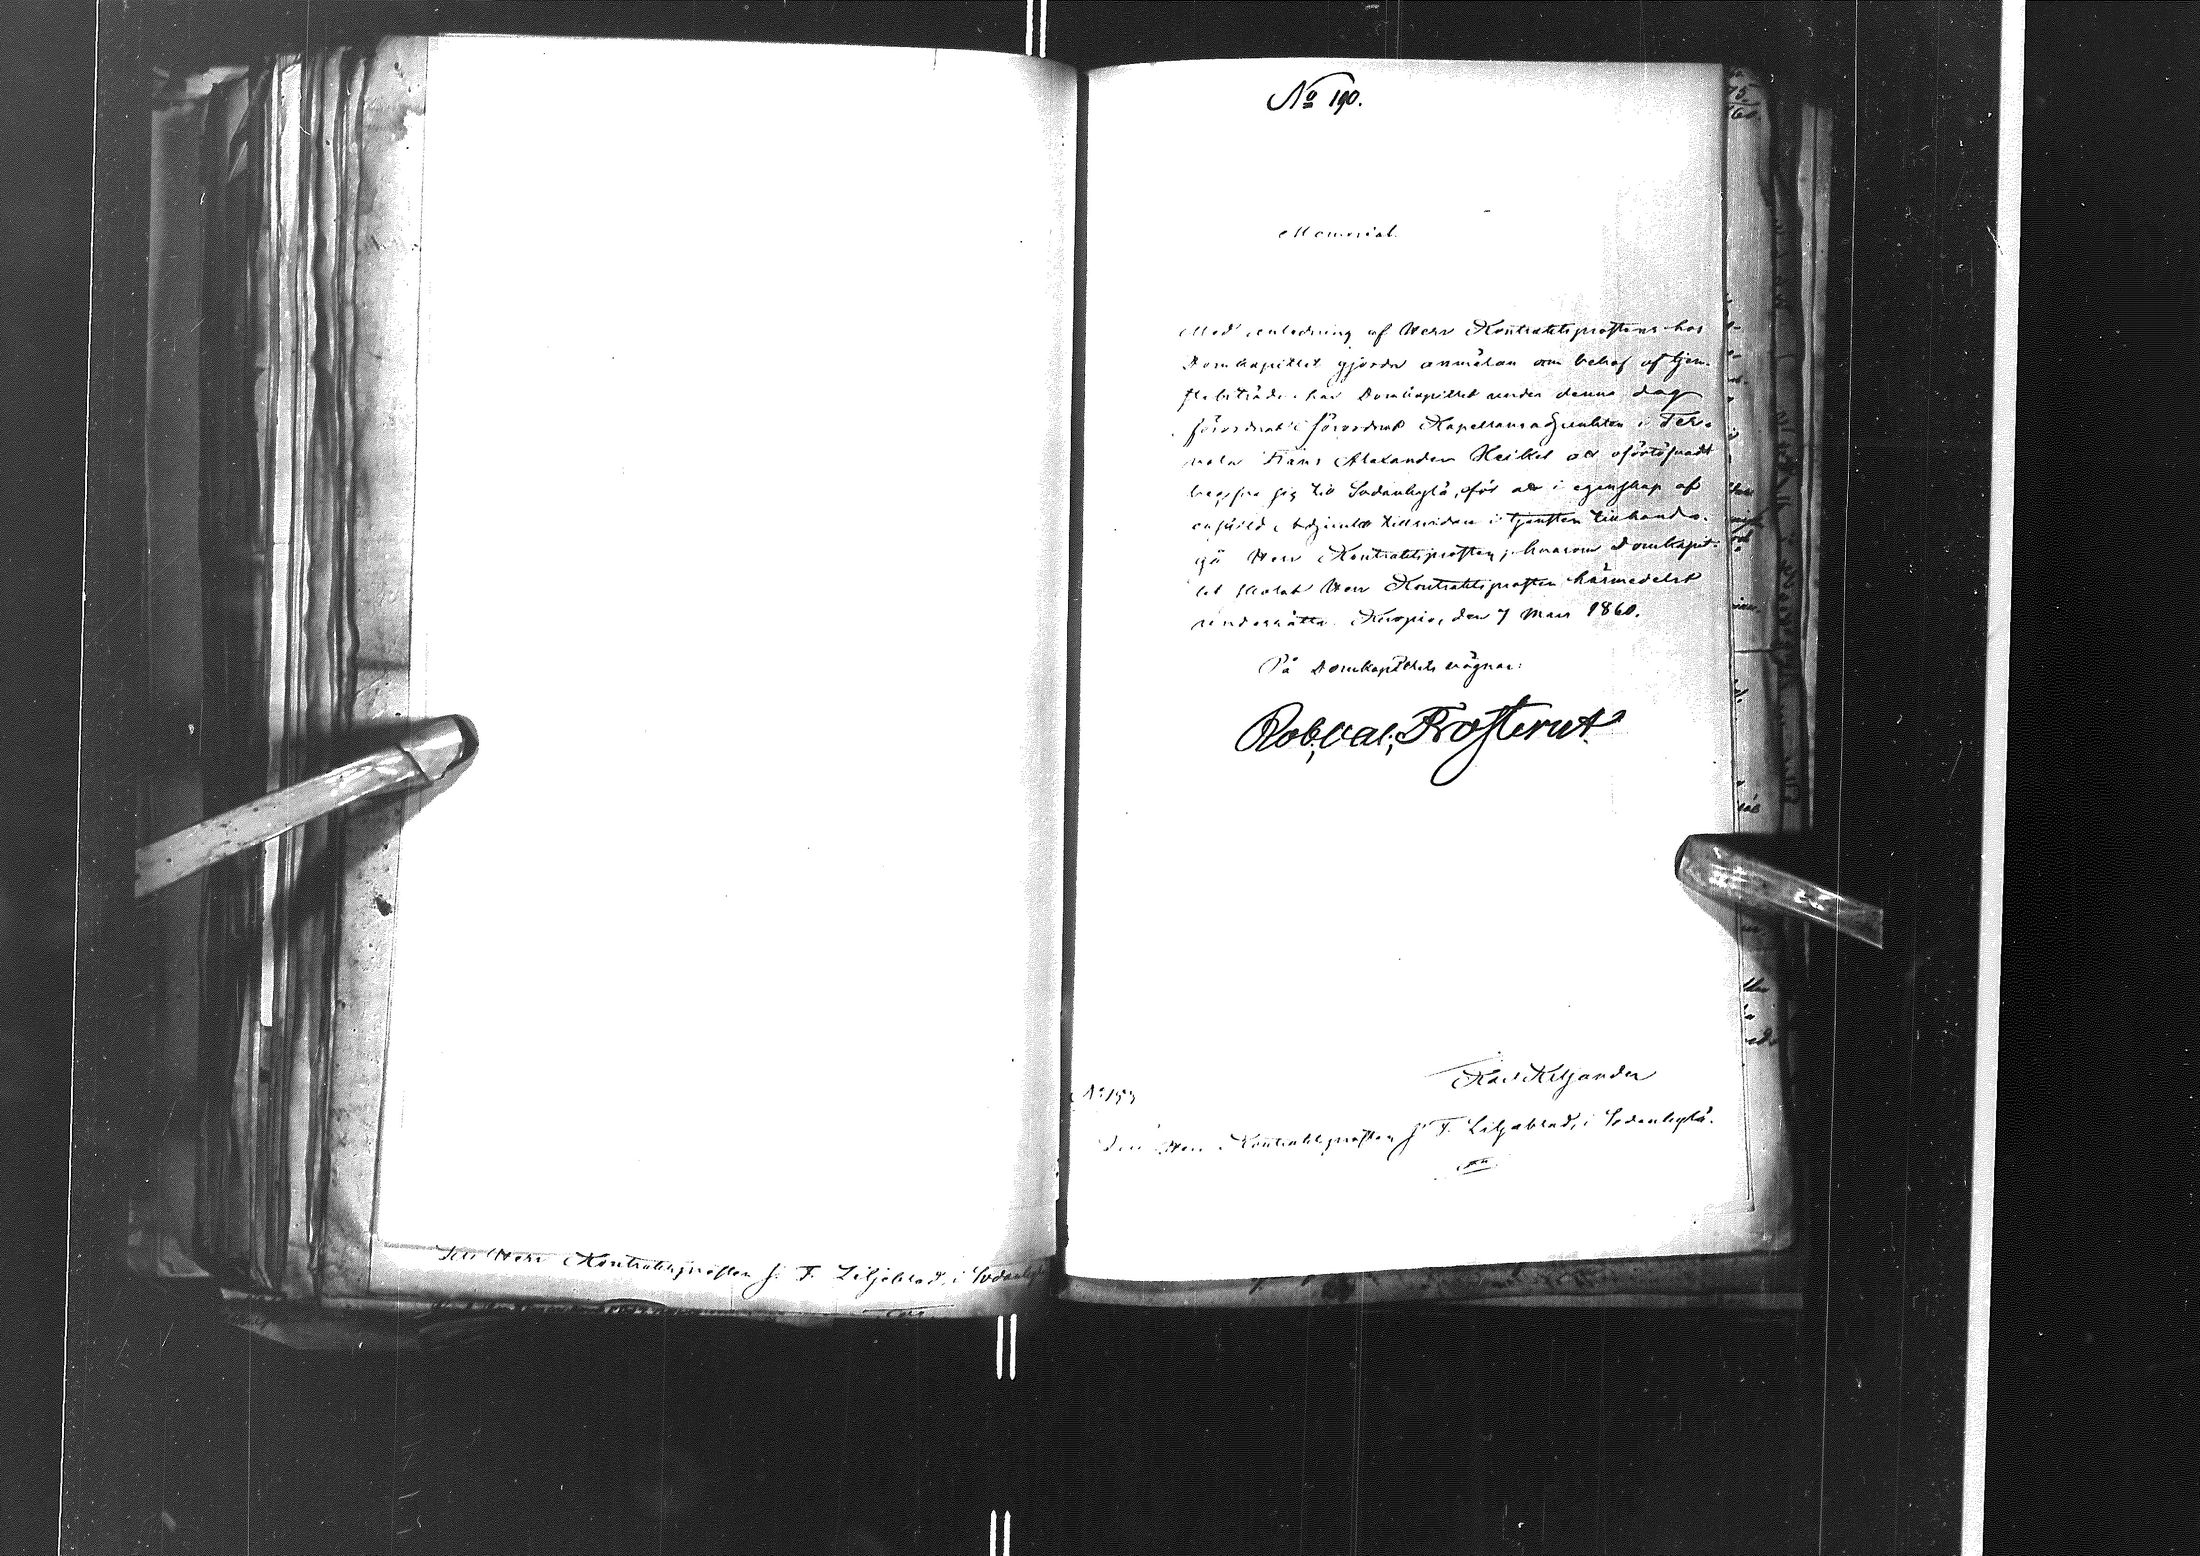 Till Herr Kontraktsprosten J. F. Liljeblad, i Sodankylä
No 190.
Memorial.
Med anledning af Herr Kontraktsprostens hos
Domkapitlet gjorda anmälan om behof af tjen-
stebiträde har Domkapitlet under denna dag
förordnat Kapellansadjunkten i Ter-
vola Frans Alexander Heikel att oförtöfvadt
begifva sig till Sodankylä, för att i egenskap af
enskild Adjunkt tillsvidare i tjensten tillhanda-
gå Herr Kontraktsprosten; hvarom Domkapit-
let skolat Herr Kontraktsprosten härmedelst
underrätta. Kuopio, den 7 Mars 1860.
På Domkapitlets vägnar:
Rob: Val: Frosterus
Karl Kiljander
No 153
Till Herr Kontraktsprosten J. F. Liljeblad, i Sodankylä.